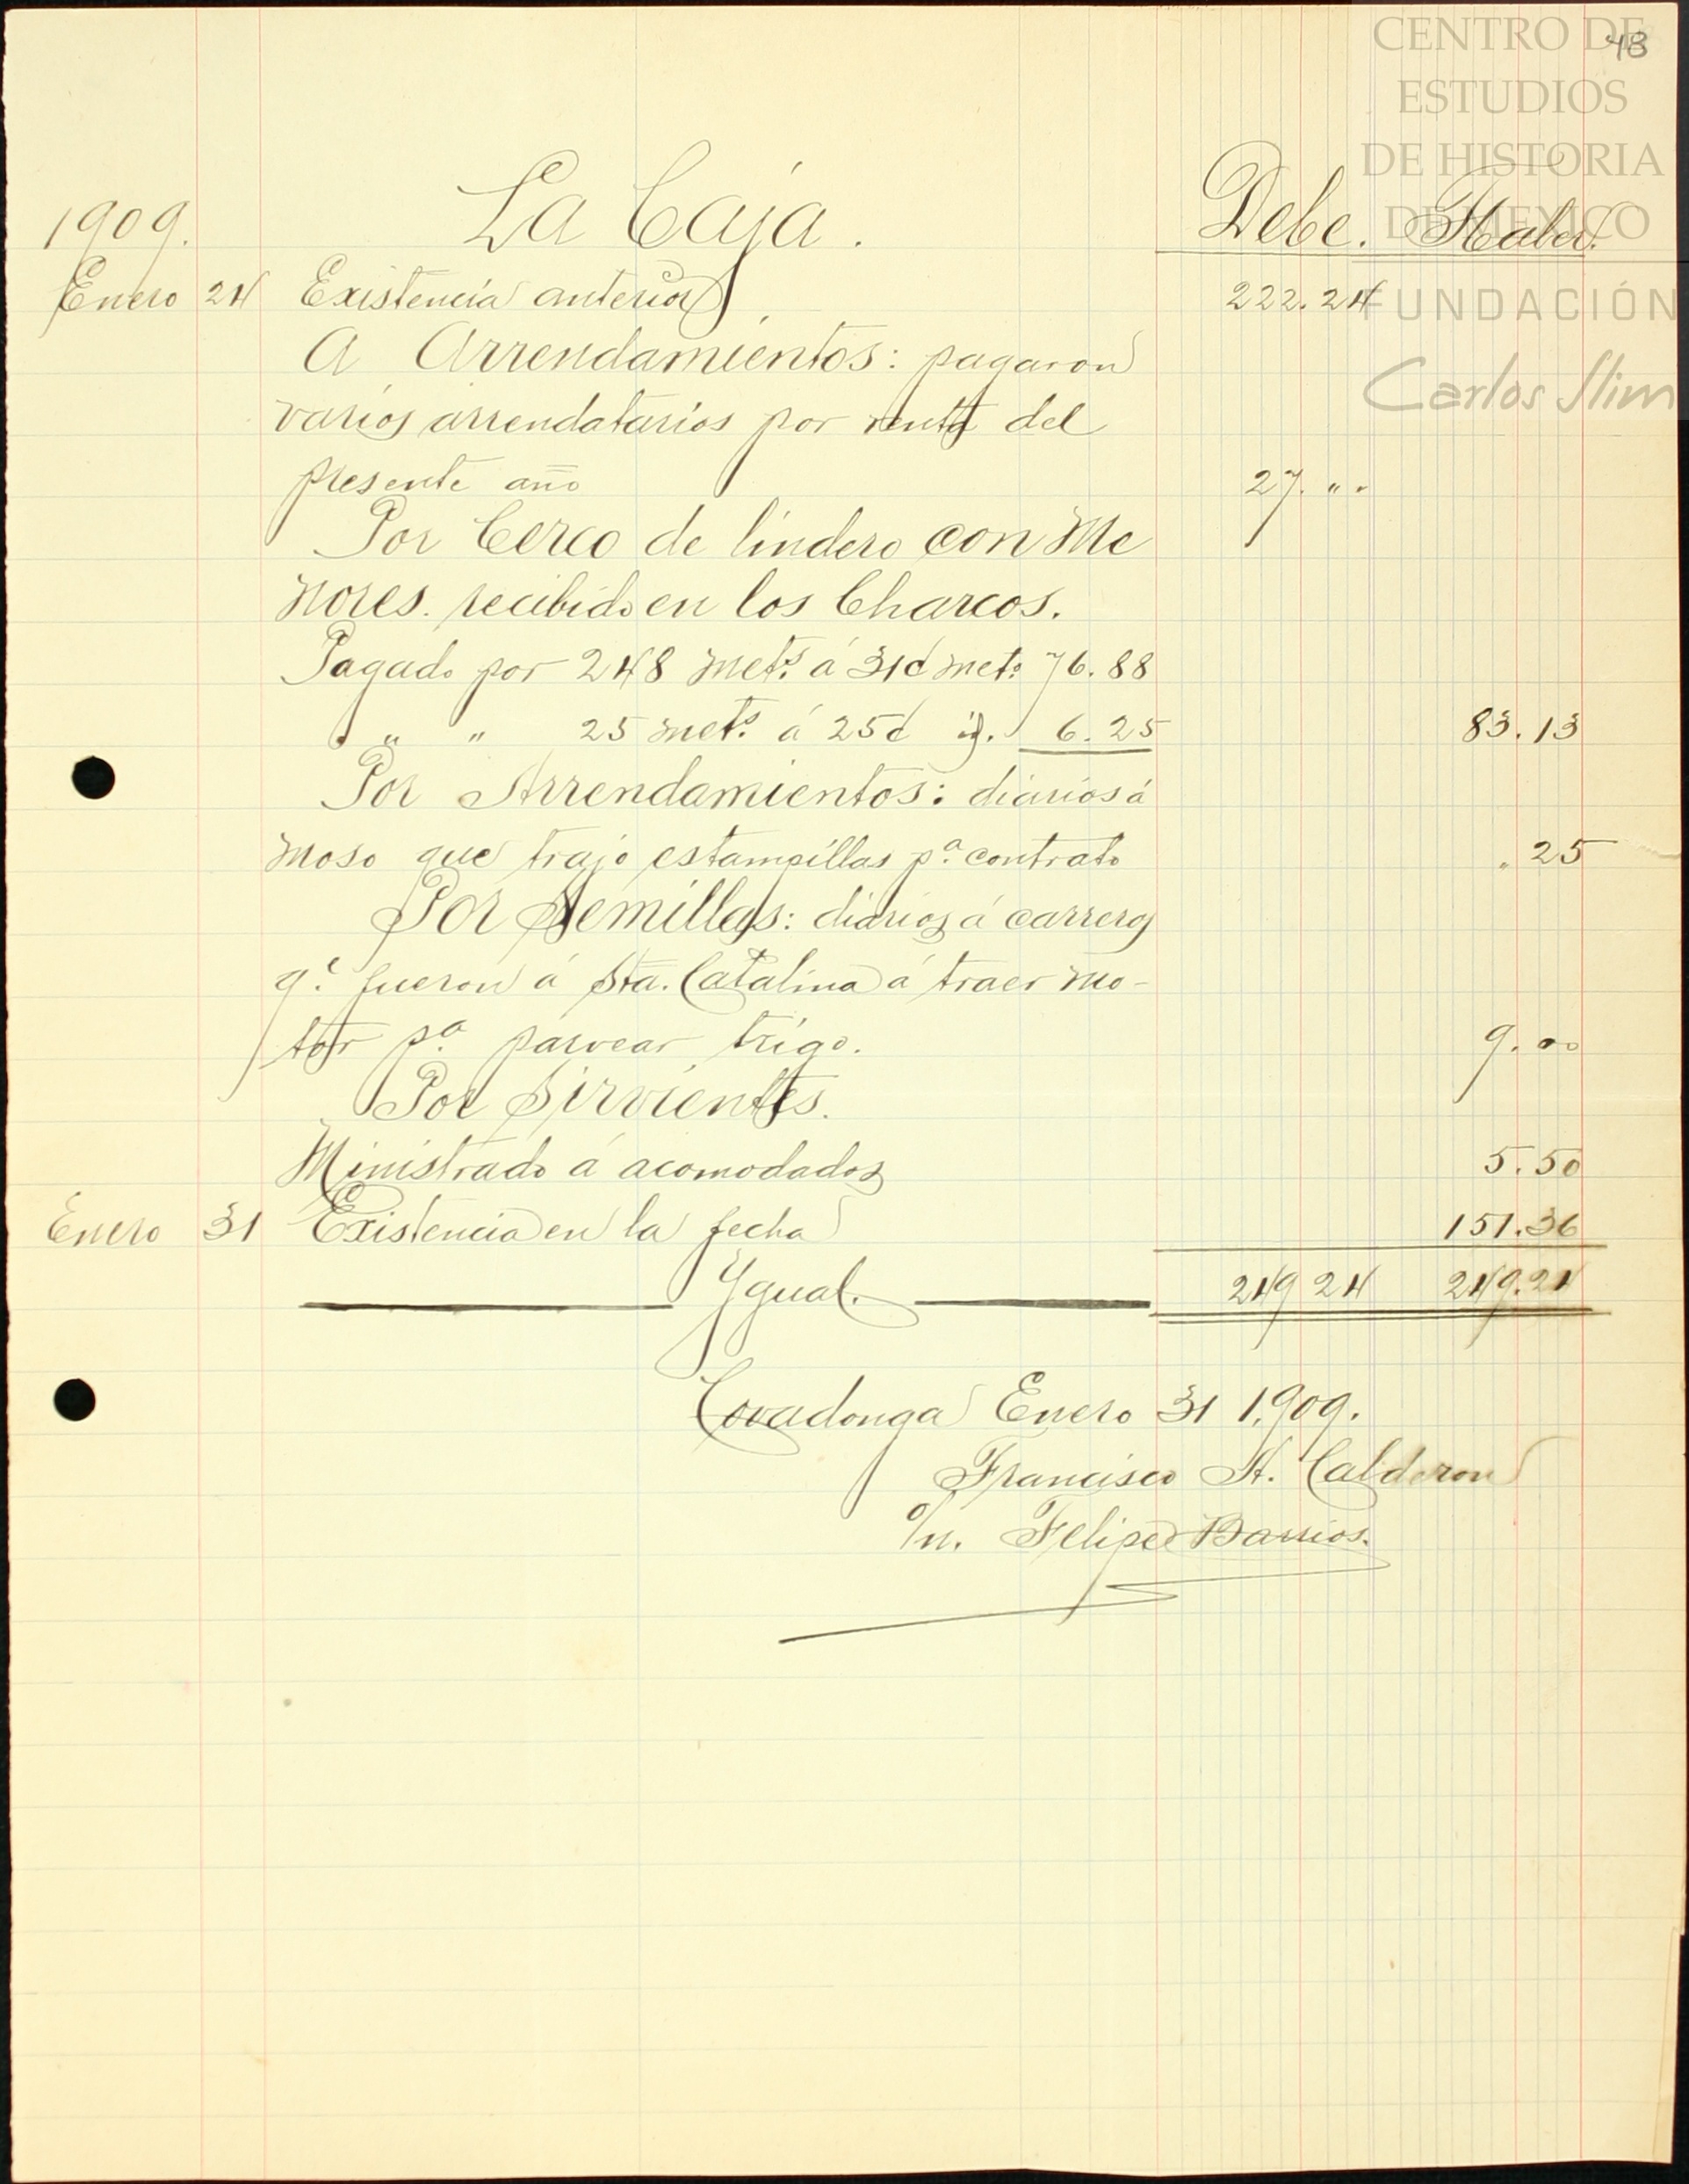 48
CENTRO DE
ESTUDIOS
DE HISTORIA
DE MEXICO
FUNDACIÓN
Carlos Slim
1909. La Caja. Debe. Haber.
Enero 24 Existencia anterior 222.24
A Arrendamientos: pagaron
varios arrendatarios por renta del
presente año 27. " "
Por Cerco de lindero con Me
nores. recibido en los Charcos.
Pagado por 248 mets. á 31¢ met. 76.88
" " " 25 mets. á 25¢ id. 6.25 83.13
Por Arrendamientos: diarios á
moso que trajo estampillas pa. contrato " 25
Por Semillas: diarios á carreros
qe. fueron á Sta. Catalina á traer mo-
tor pa. parvear trigo. 9.00
Por Sirvientes.
Ministrado á acomodados 5.50
Enero 31 Existencia en la fecha 151.36
Ygual. 249 24 249.24
Covadonga Enero 31 1,909.
Francisco A. Calderon
o/n. Felipe Barrios.